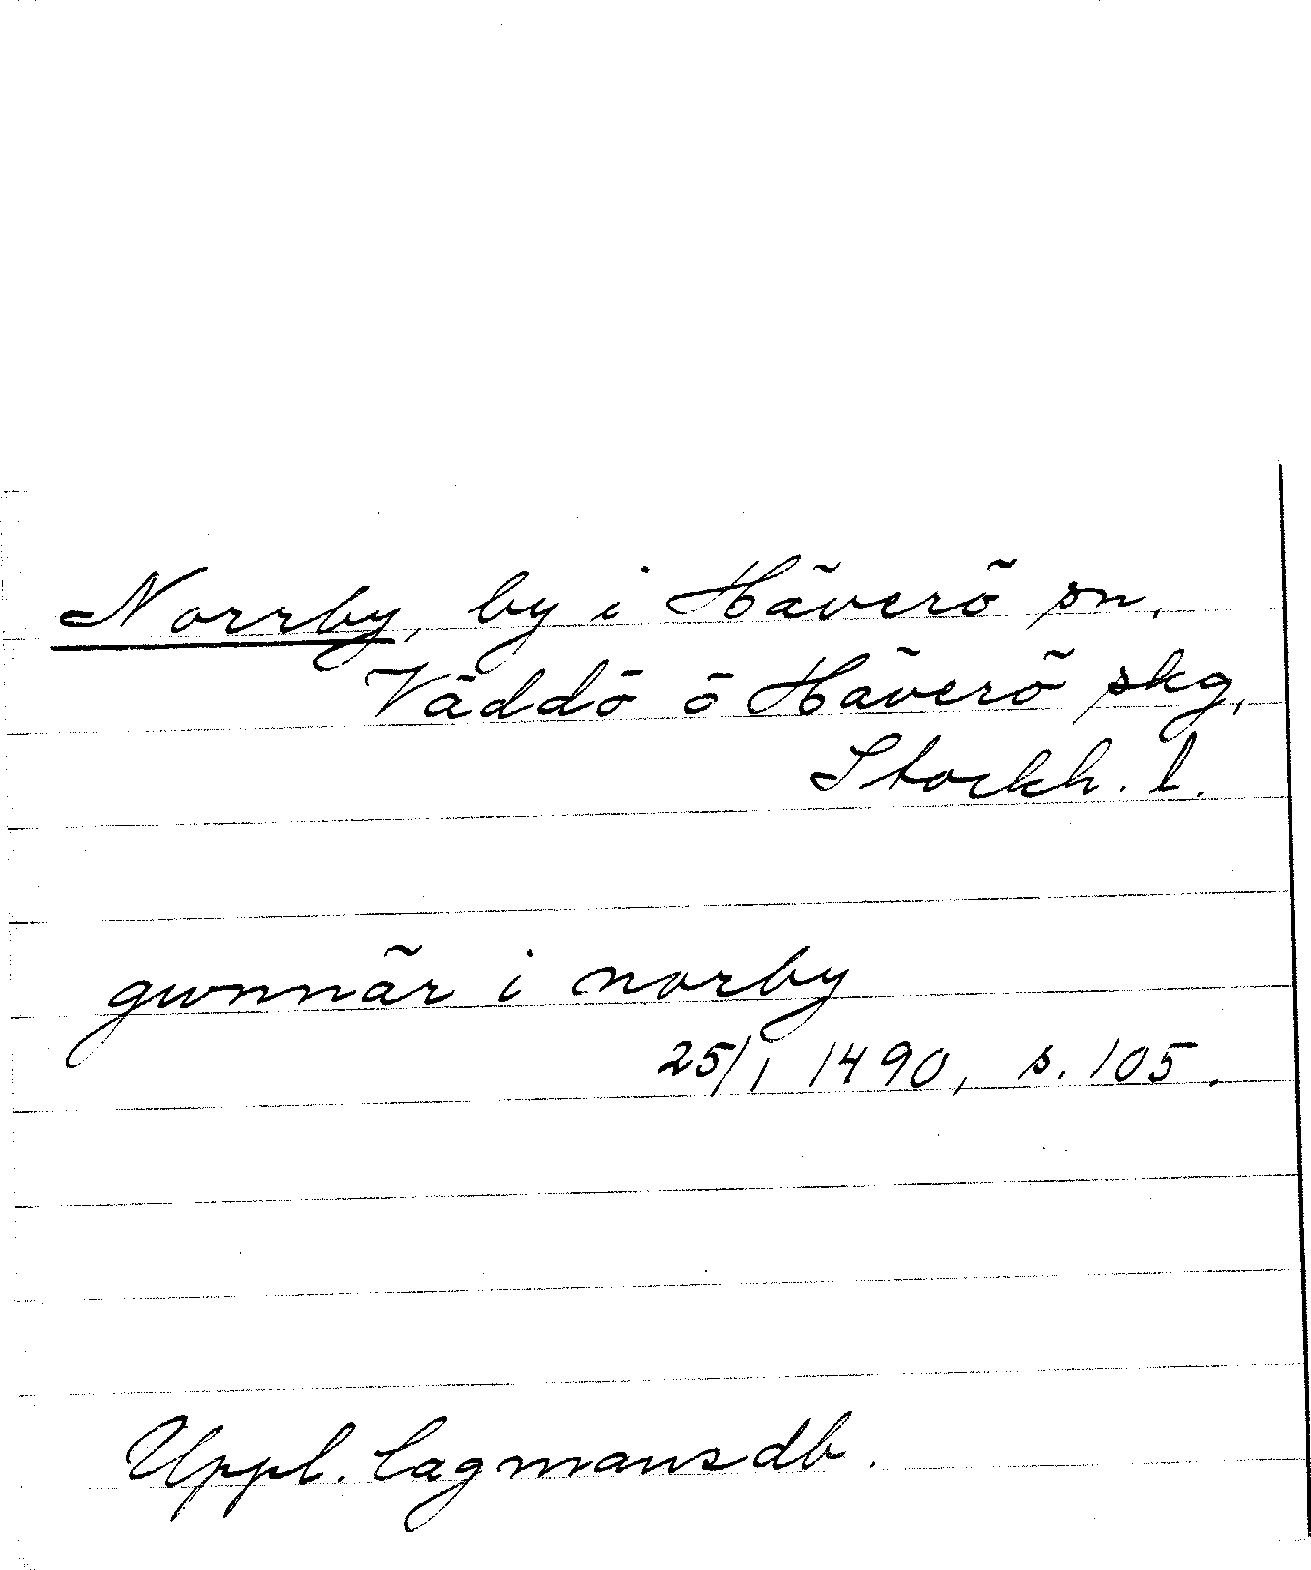 Norrby, by i Häverö sn,
Väddö o Häverö skg,
Stockh. l.
gwnnär i norby
25/1 1490, s. 105.
Uppl. lagmansdb.